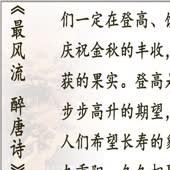 《最风流 醉唐诗》
们一定在登高、
庆祝金秋的丰收，
获的果实。登高是
步步高升的期望，
人们希望长寿的